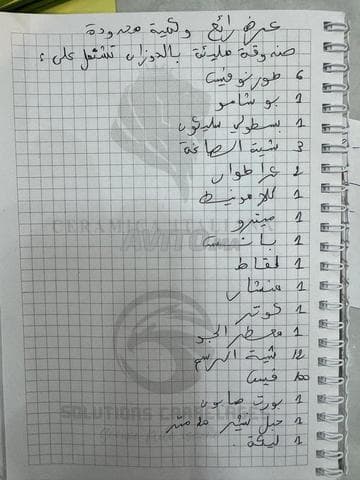 عرض رائع وكمية محدودة
صندوقة مليئة بالدوزان تشتمل على :
6 طورنوفيس
1 بوشامو
1 سطولي سليكون
3 شيتة الصباغة
2 عراطوار
1 كلامونيط
1 ميترو
1 بانسة
1 لقاط
1 منشار
1 كوتر
1 معطر الجو
12 شيتة الرسم
100 فيس
1 بورت صابون
1 حبل نشير 20 متر
1 ليكة
CERAMIC
AVITO
SOLUTIONS